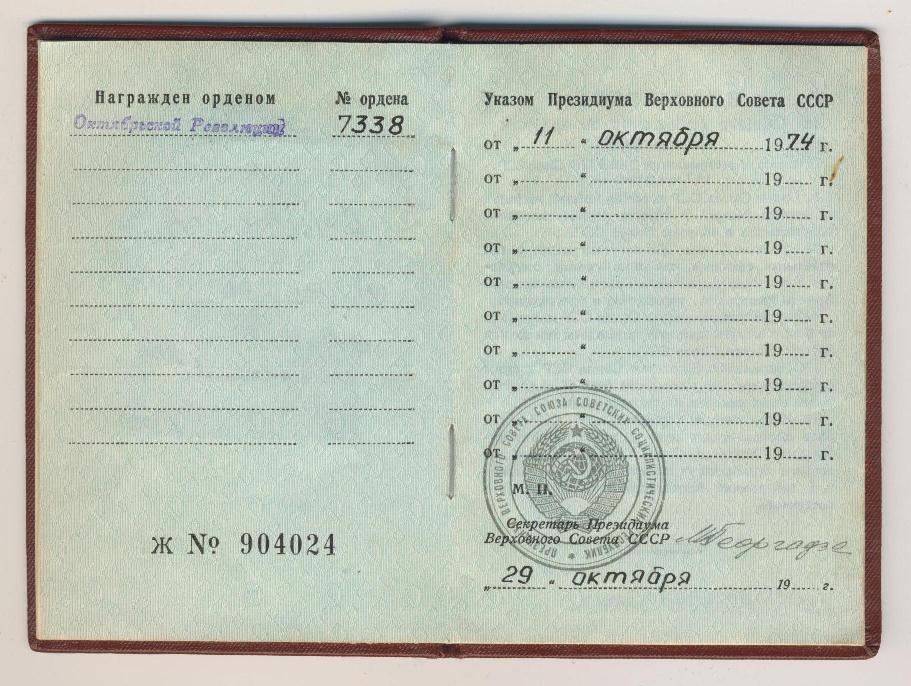 Награжден орденом № ордена
Октябрьской Революции 7338
Ж № 904024
Указом Президиума Верховного Совета СССР
от „ 11 “ октября 1974 г.
от „ “ 19 г.
от „ “ 19 г.
от „ “ 19 г.
от „ “ 19 г.
от „ “ 19 г.
от „ “ 19 г.
от „ “ 19 г.
от „ “ 19 г.
от „ “ 19 г.
ПРЕЗИДИУМ ВЕРХОВНОГО СОВЕТА СОЮЗА СОВЕТСКИХ СОЦИАЛИСТИЧЕСКИХ РЕСПУБЛИК
М. П.
Секретарь Президиума
Верховного Совета СССР МГеоргадзе
„ 29 “ октября 19 г.